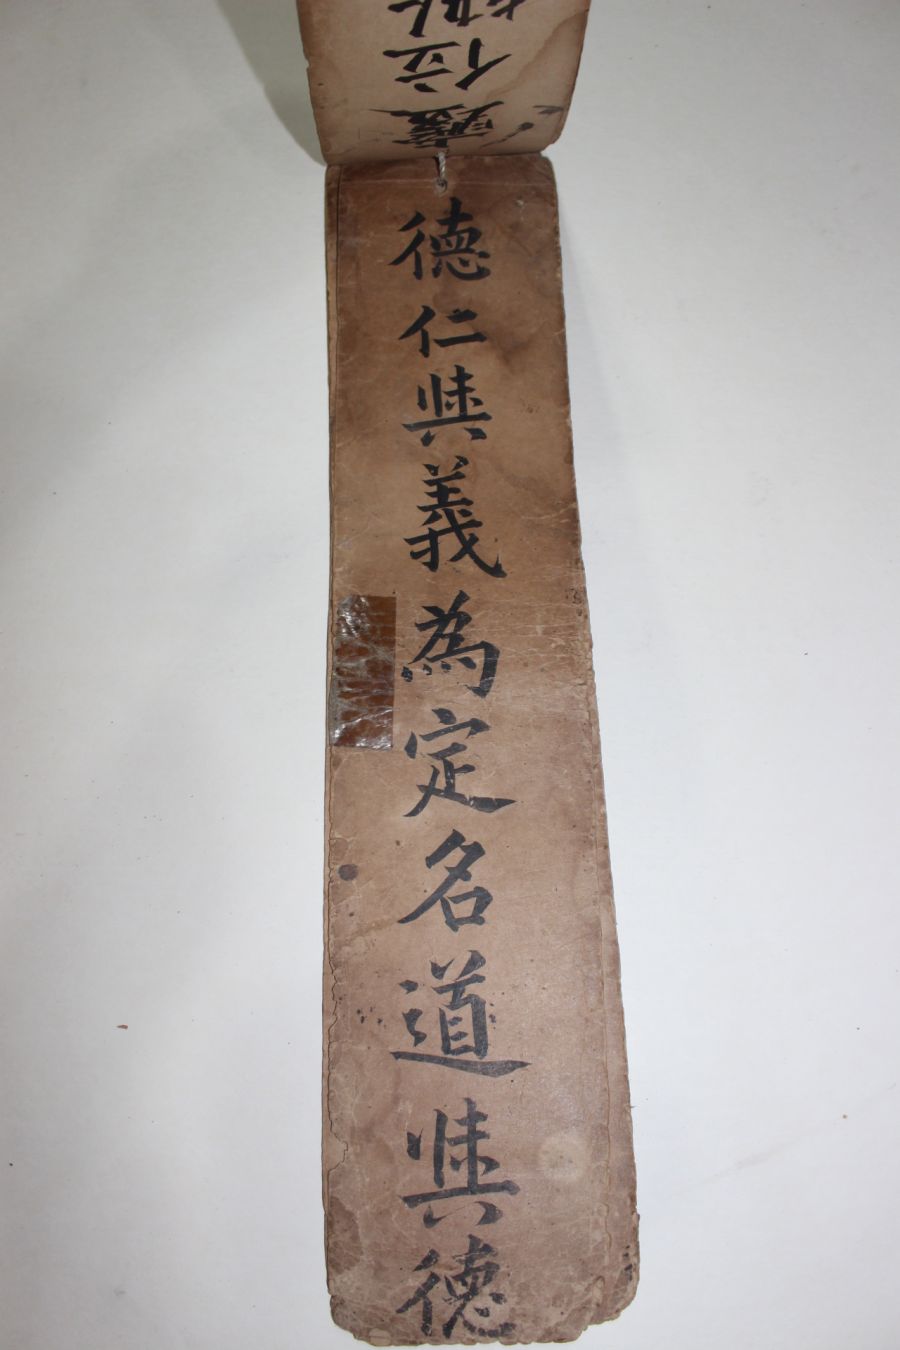 位
靈
德仁與義為定名道與德